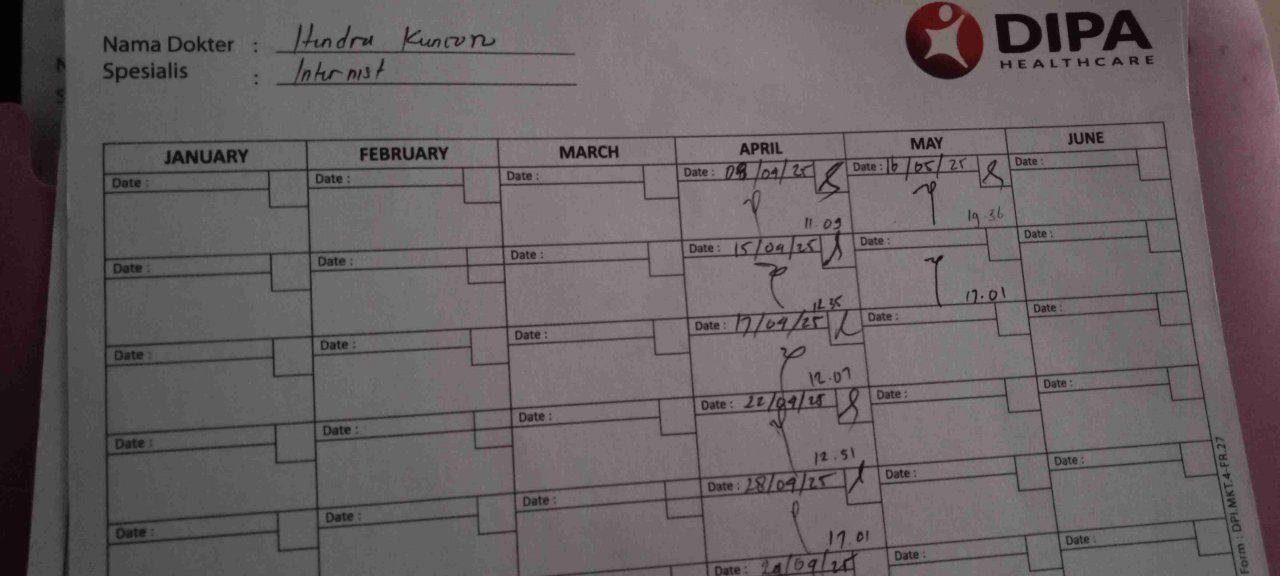 Nama Dokter : Hendra Kuncoro
Spesialis : Internist
DIPA
HEALTHCARE
JANUARY FEBRUARY MARCH APRIL MAY JUNE
Date : Date : Date : Date : 08/04/25 Date : 16/05/25 Date :
11.09 19.36
Date : Date : Date : Date : 15/04/25 Date : Date :
12.35 17.01
Date : Date : Date : Date : 17/04/25 Date : Date :
12.07
Date : Date : Date : Date : 22/04/25 Date : Date :
12.51
Date : Date : Date : Date : 28/04/25 Date : Date :
17.01
Date : 29/04/25 Date : Date :
Form : DPI.MKT.4-FR.27